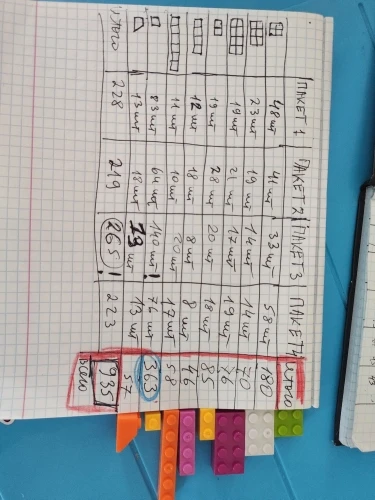 ПАКЕТ 1 ПАКЕТ 2 ПАКЕТ 3 ПАКЕТ 4 Итого
48 шт 41 шт 33 шт 58 шт 180
23 шт 19 шт 14 шт 14 шт 70
19 шт 21 шт 17 шт 19 шт 76
19 шт 28 шт 20 шт 18 шт 85
12 шт 18 шт 8 шт 8 шт 46
11 шт 10 шт 20 шт 17 шт 58
83 шт 64 шт 140 шт! 76 шт 363
13 шт 18 шт 13 шт 13 шт 57
Итого 228 219 265! 223 935
Всего